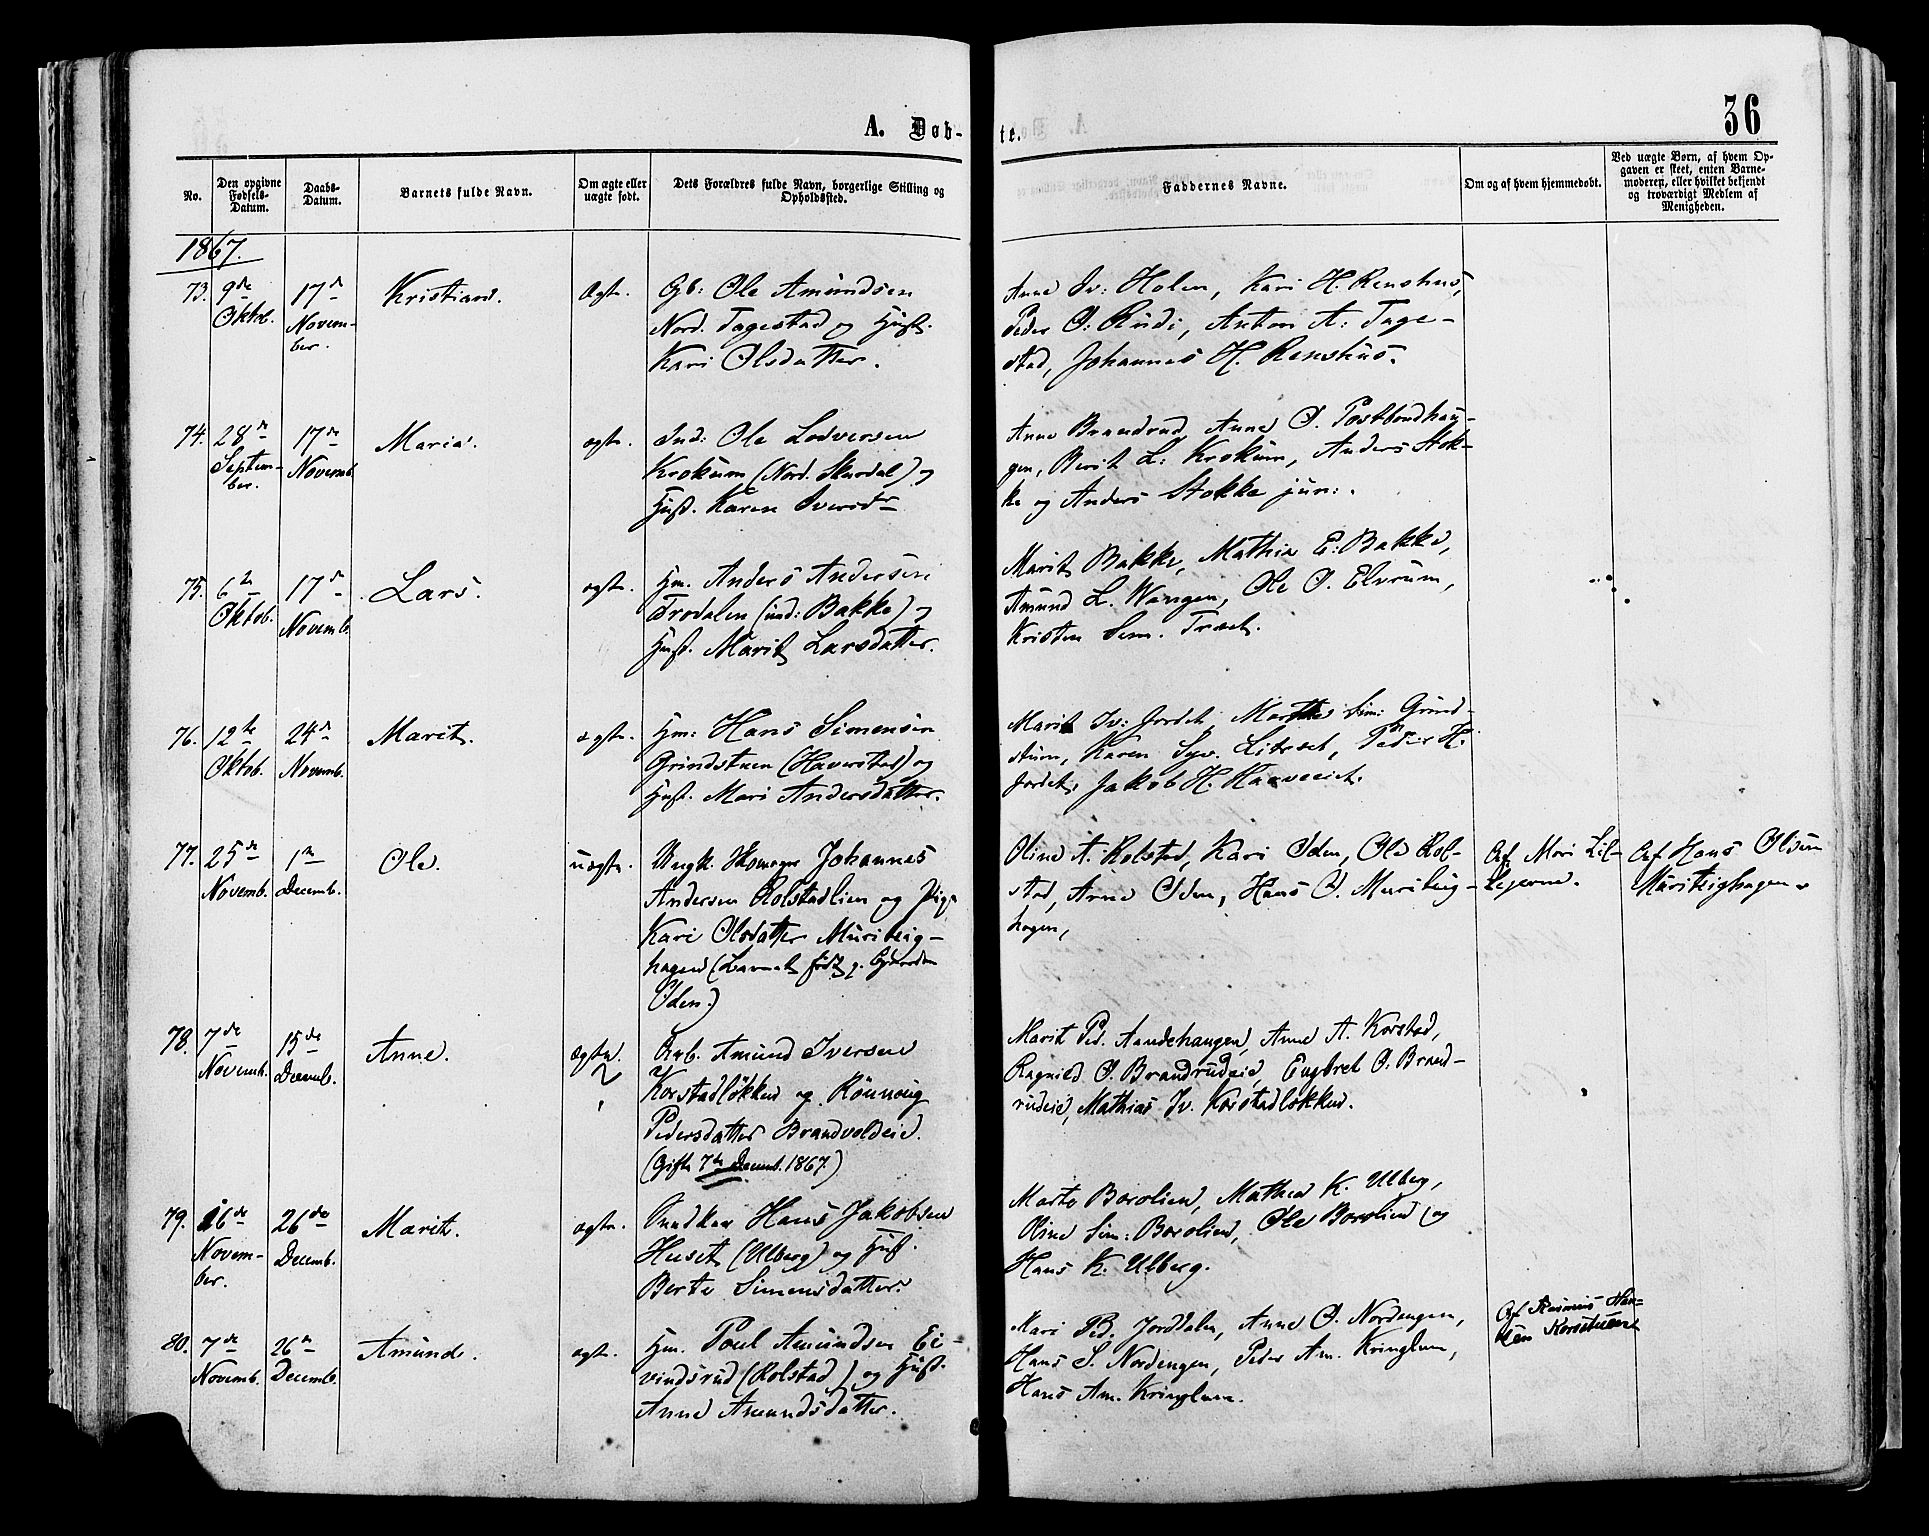 A. Døb-
te.
36
No.
Den opgivne
Fødsels-
Datum.
Daabs-
Datum.
Barnets fulde Navn.
Om ægte eller
uægte født.
Dets Forældres fulde Navn, borgerlige Stilling og
Opholdssted.
Faddernes Navne.
Om og af hvem hjemmedøbt.
Ved uægte Børn, af hvem Op-
gaven er skeet, enten Barne-
moderen, eller hvilket bekjendt
og troværdigt Medlem af
Menigheden.
1867.
73.
9de
Oktob.
17de
Novem-
ber.
Kristian.
ægte.
Gb: Ole Amundsen
Nord. Tagestad og Hust.
Kari Olsdatter.
Anne Iv: Holen, Kari H. Renshus,
Peder O: Rudi, Anton A: Tage-
stad, Johannes H. Renshus.
74.
28de
Septem-
ber.
17de
Novemb.
Maria.
ægte.
Ind: Ole Lodversen
Krokum (Nord. Skurdal) og
Hust. Karen Iversdtr
Anne Brandrud, Anne O.
gen, Berit L: Krokum, Anders Stok-
ke og Anders Stokke jun:.
75.
6te
Oktob.
17de
Novemb.
Lars.
ægte.
Hm. Anders Andersen
Trodalen (ind: Bakke) og
Hust. Marit Larsdatter.
Marit Bakke, Mathia E: Bakke,
Amund L. Wangen, Ole O. Elvrum,
Kristen Sim. Træet.
76.
12te
Oktob.
24de
Novemb.
Marit.
ægte.
Hm: Hans Simensen
Grindstuen (Haverstad) og
Hust. Mari Andersdatter.
Marit Iv: Jordet, Marthe Sim: Grind-
stuen, Karen Syv. Peder H.
Jordet, Jakob H.
77.
25de
Novemb.
1ste
Decemb.
Ole.
uægte.
Ungk. Johannes
Andersen Kolstadlien og Pige
Kari Olsdatter Muriteig-
hagen (Barnet født p.
Oden.)
Oline A. Kolstad, Kari Oden, Ole Kol-
stad, Anne Oden, Hans O. Muriteig-
hagen,
Af Mari Lil-
Af Hans Olsen
Muriteighagen.
78.
7de
Novemb.
15de
Decemb.
Anne.
ægte.
Arb. Amund Iversen
Korstadløkken og Rønnoug
Pedersdatter Brandvoldeie.
(Gifte 7de Decemb. 1867.)
Marit Ped. Anne A. Korstad,
Ragnild O. Brandrudeie, Engebret O. Brand-
rudeie, Mathias Iv. Korstadløkken.
79.
26de
Novem-
ber.
26de
Decemb.
Marit.
ægte.
Snedker Hans Jakobsen
Huset (Ulberg) og Hust.
Berte Simensdatter.
Marte Borolien, Mathea K. Ulberg,
Oline Sim: Borolien, Ole Borolien og
Hans K. Ulberg.
80.
7de
Novemb.
26de
Decemb.
Amund.
ægte.
Hm. Poul Amundsen Ei-
vindsrud (Kolstad) og Hust.
Anne Amundsdatter.
Mari Pd. Jordalen, Anne O. Nordengen,
Hans S. Nordengen, Peder Am. Kringlum,
Hans Am. Kringlum.
Af Rasmus Han-
sen Korsstuen